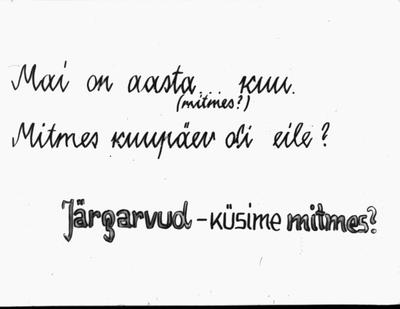 Mai on aasta... kuu.
(mitmes?)
Mitmes kuupäev oli eile?
Järgarvud - küsime mitmes?